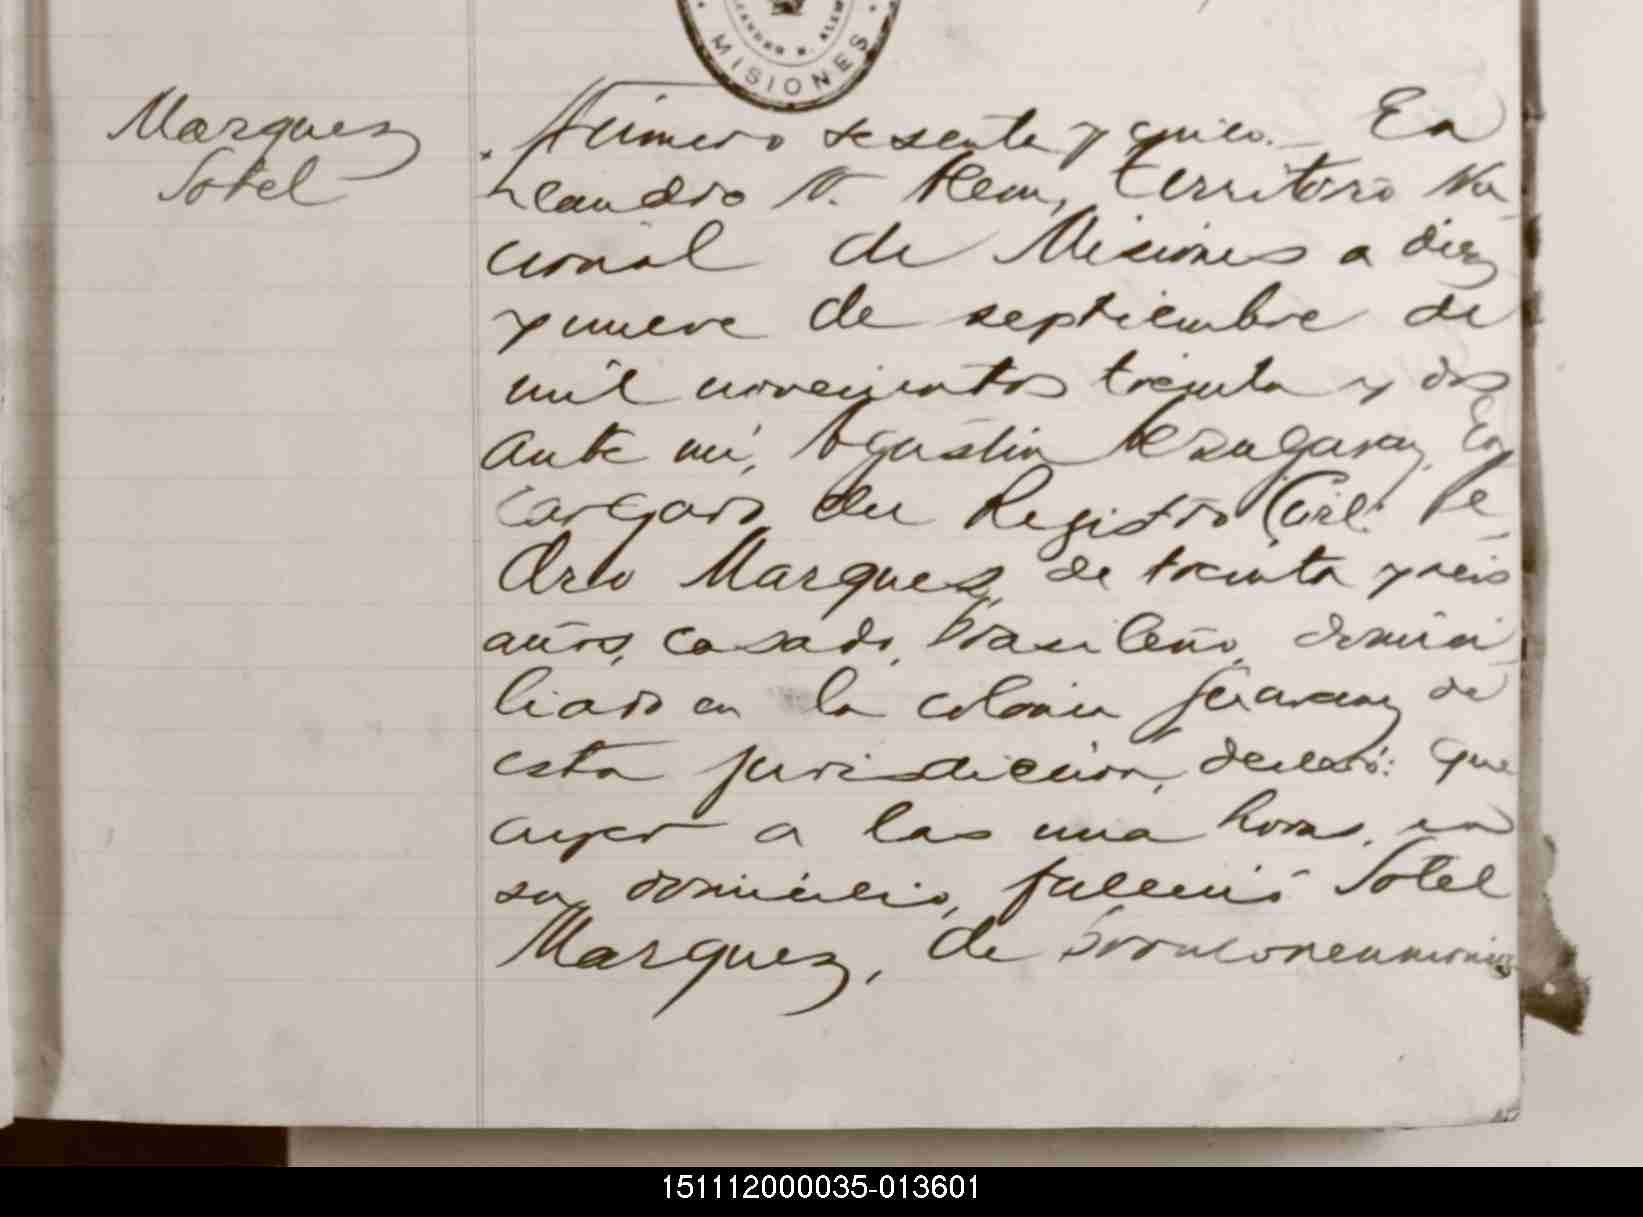 MISIONES
Marquez
Sotel
Número sesenta y cinco. En
Leandro N. Alem, territorio Na
cional de Misiones a diez
y nueve de septiembre de
mil novecientos treinta y dos
ante mí, Agustin En
cargado del Registro Civil Pe
dro Marquez, de treinta y seis
años, casado, brasileño, domici
liado en la colonia Guarany de
esta jurisdiccion, declaró: que
ayer a las una horas, en
su domicilio, falleció Sotel
Marquez, de bronconeumonia
151112000035-013601